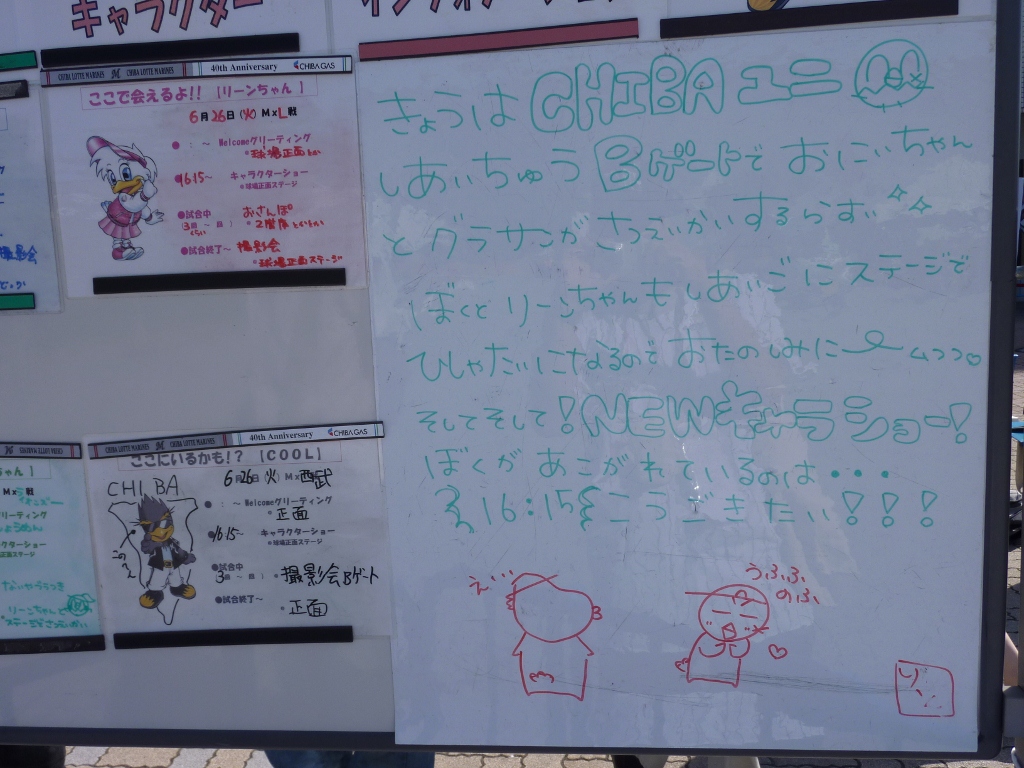 キャラクター
インフォメーション
CHIBA LOTTE MARINES
CHIBA LOTTE MARINES
40th Anniversary
CHIBAGAS
ここで会えるよ!! [リーンちゃん]
6月26日(火) M×L戦
●　：～ Welcomeグリーティング
*球場正面とか
●16:15～ キャラクターショー
*球場正面ステージ
●試合中 おさんぽ
3回～　回)
くらい
*2階席とかいたりとか
●試合終了～ 撮影会
*球場正面ステージ
撮影会
CHIBA LOTTE MARINES
CHIBA LOTTE MARINES
40th Anniversary
CHIBAGAS
ここにいるかも!? [COOL]
6月26日(火) M×西武
CHIBA
●　：～ Welcomeグリーティング
*正面
●16:15～ キャラクターショー
*球場正面ステージ
●試合中
3回～　回)
*撮影会Bゲート
●試合終了～
*正面
ちゃん]
M×　戦
グリーティング
ターショー
正面ステージ
リーンちゃんと
きょうは CHIBA ユニ
しあいちゅう Bゲートで おにいちゃん
と グラサンが さつえいかいするらすぃ
ぼくと リーンちゃんも しあいごに ステージで
ひしゃたいになるので おたのしみに
そしてそして! NEWキャラショー!
ぼくが あこがれているのは・・・
16:15 こうごきたい!!!
え…
うふふ
のふ